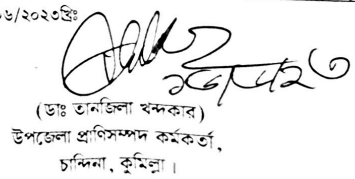 ০৬/২০২৩খ্রিঃ
(ডাঃ তানজিলা খন্দকার)
উপজেলা প্রাণিসম্পদ কর্মকর্তা,
চান্দিনা, কুমিল্লা।